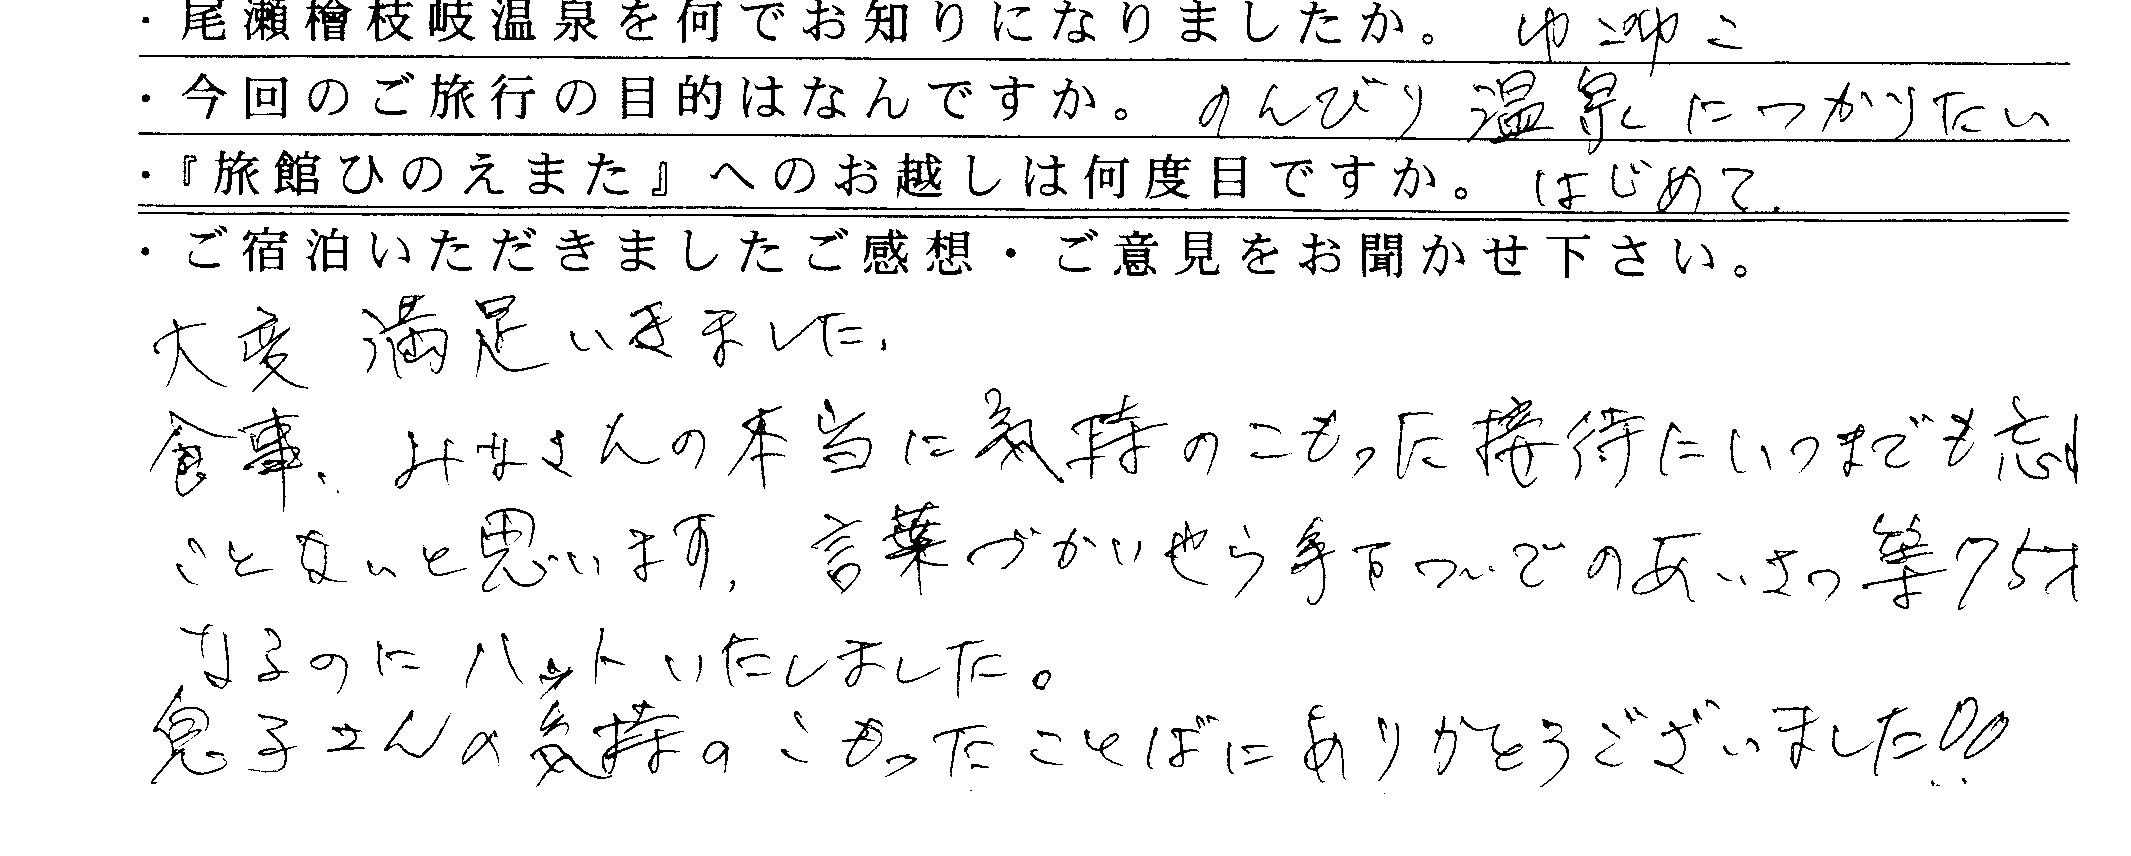 ・尾瀬檜枝岐温泉を何でお知りになりましたか。 ゆこゆこ
・今回のご旅行の目的はなんですか。 のんびり温泉につかりたい
・『旅館ひのえまた』へのお越しは何度目ですか。 はじめて.
・ご宿泊いただきましたご感想・ご意見をお聞かせ下さい。
大変 満足いきました.
食事、みなさんの本当に気持のこもった接待にいつまでも忘れ
ことないと思います. 言葉づかいやら手をついてのあいさつ等75才
なるのにハットいたしました。
息子さんの気持のこもったことばにありがとうございました!!